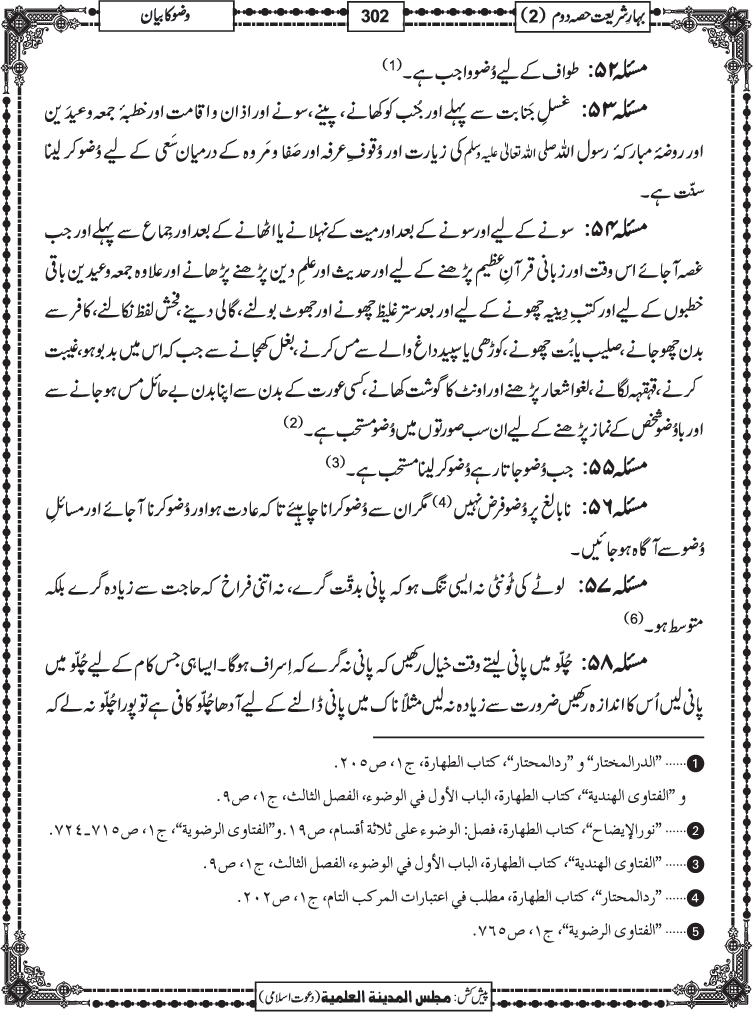 بہارِ شریعت حصہ دوم (2)
302
وضو کا بیان
مسئلہ ۵۲: طواف کے لیے وُضو واجب ہے۔ (1)
مسئلہ ۵۳: غسلِ جَنابت سے پہلے اور جُنب کو کھانے، پینے، سونے اور اذان و اقامت اور خطبۂ جمعہ و عیدَین
اور روضۂ مبارکۂ رسول اللہ صلی اللہ تعالیٰ علیہ وسلم کی زیارت اور وُقوفِ عرفہ اور صَفا و مَروہ کے درمیان سَعی کے لیے وُضو کر لینا
سنّت ہے۔
مسئلہ ۵۴: سونے کے لیے اور سونے کے بعد اور میت کے نہلانے یا اٹھانے کے بعد اور جِماع سے پہلے اور جب
غصہ آ جائے اس وقت اور زبانی قرآنِ عظیم پڑھنے کے لیے اور حدیث اور علمِ دین پڑھنے پڑھانے اور علاوہ جمعہ و عیدین باقی
خطبوں کے لیے اور کتبِ دِینیہ چھونے کے لیے اور بعد ستر غلیظ چھونے اور جھوٹ بولنے، گالی دینے، فحش لفظ نکالنے، کافر سے
بدن چھو جانے، صلیب یا بُت چھونے، کوڑھی یا سپید داغ والے سے مس کرنے، بغل کھجانے سے جب کہ اس میں بدبو ہو، غیبت
کرنے، قہقہہ لگانے، لغو اشعار پڑھنے اور اونٹ کا گوشت کھانے، کسی عورت کے بدن سے اپنا بدن بے حائل مس ہو جانے سے
اور با وُضو شخص کے نماز پڑھنے کے لیے ان سب صورتوں میں وُضو مستحب ہے۔ (2)
مسئلہ ۵۵: جب وُضو جاتا رہے وُضو کر لینا مستحب ہے۔ (3)
مسئلہ ۵۶: نابالغ پر وُضو فرض نہیں (4) مگر ان سے وُضو کرانا چاہیئے تا کہ عادت ہو اور وُضو کرنا آ جائے اور مسائلِ
وُضو سے آگاہ ہو جائیں۔
مسئلہ ۵۷: لوٹے کی ٹُونٹی نہ ایسی تنگ ہو کہ پانی بدقّت گرے، نہ اتنی فراخ کہ حاجت سے زیادہ گرے بلکہ
متوسط ہو۔ (6)
مسئلہ ۵۸: چُلّو میں پانی لیتے وقت خیال رکھیں کہ پانی نہ گرے کہ اِسراف ہوگا۔ ایسا ہی جس کام کے لیے چُلّو میں
پانی لیں اُس کا اندازہ رکھیں ضرورت سے زیادہ نہ لیں مثلاً ناک میں پانی ڈالنے کے لیے آدھا چُلّو کافی ہے تو پورا چُلّو نہ لے کہ
1 ...... ”الدرالمختار“ و ”ردالمحتار“، کتاب الطھارۃ، ج١، ص٢٠٥.
و ”الفتاوی الھندیۃ“، کتاب الطھارۃ، الباب الأول في الوضوء، الفصل الثالث، ج١، ص٩.
2 ...... ”نورالإیضاح“، کتاب الطھارۃ، فصل: الوضوء علی ثلاثۃ أقسام، ص١٩. و”الفتاوی الرضویۃ“، ج١، ص٧١٥ـ٧٢٤.
3 ...... ”الفتاوی الھندیۃ“، کتاب الطھارۃ، الباب الأول في الوضوء، الفصل الثالث، ج١، ص٩.
4 ...... ”ردالمحتار“، کتاب الطھارۃ، مطلب في اعتبارات المرکب التام، ج١، ص٢٠٢.
5 ...... ”الفتاوی الرضویۃ“، ج١، ص٧٦٥.
پیش کش: مجلس المدینۃ العلمیۃ (دعوتِ اسلامی)